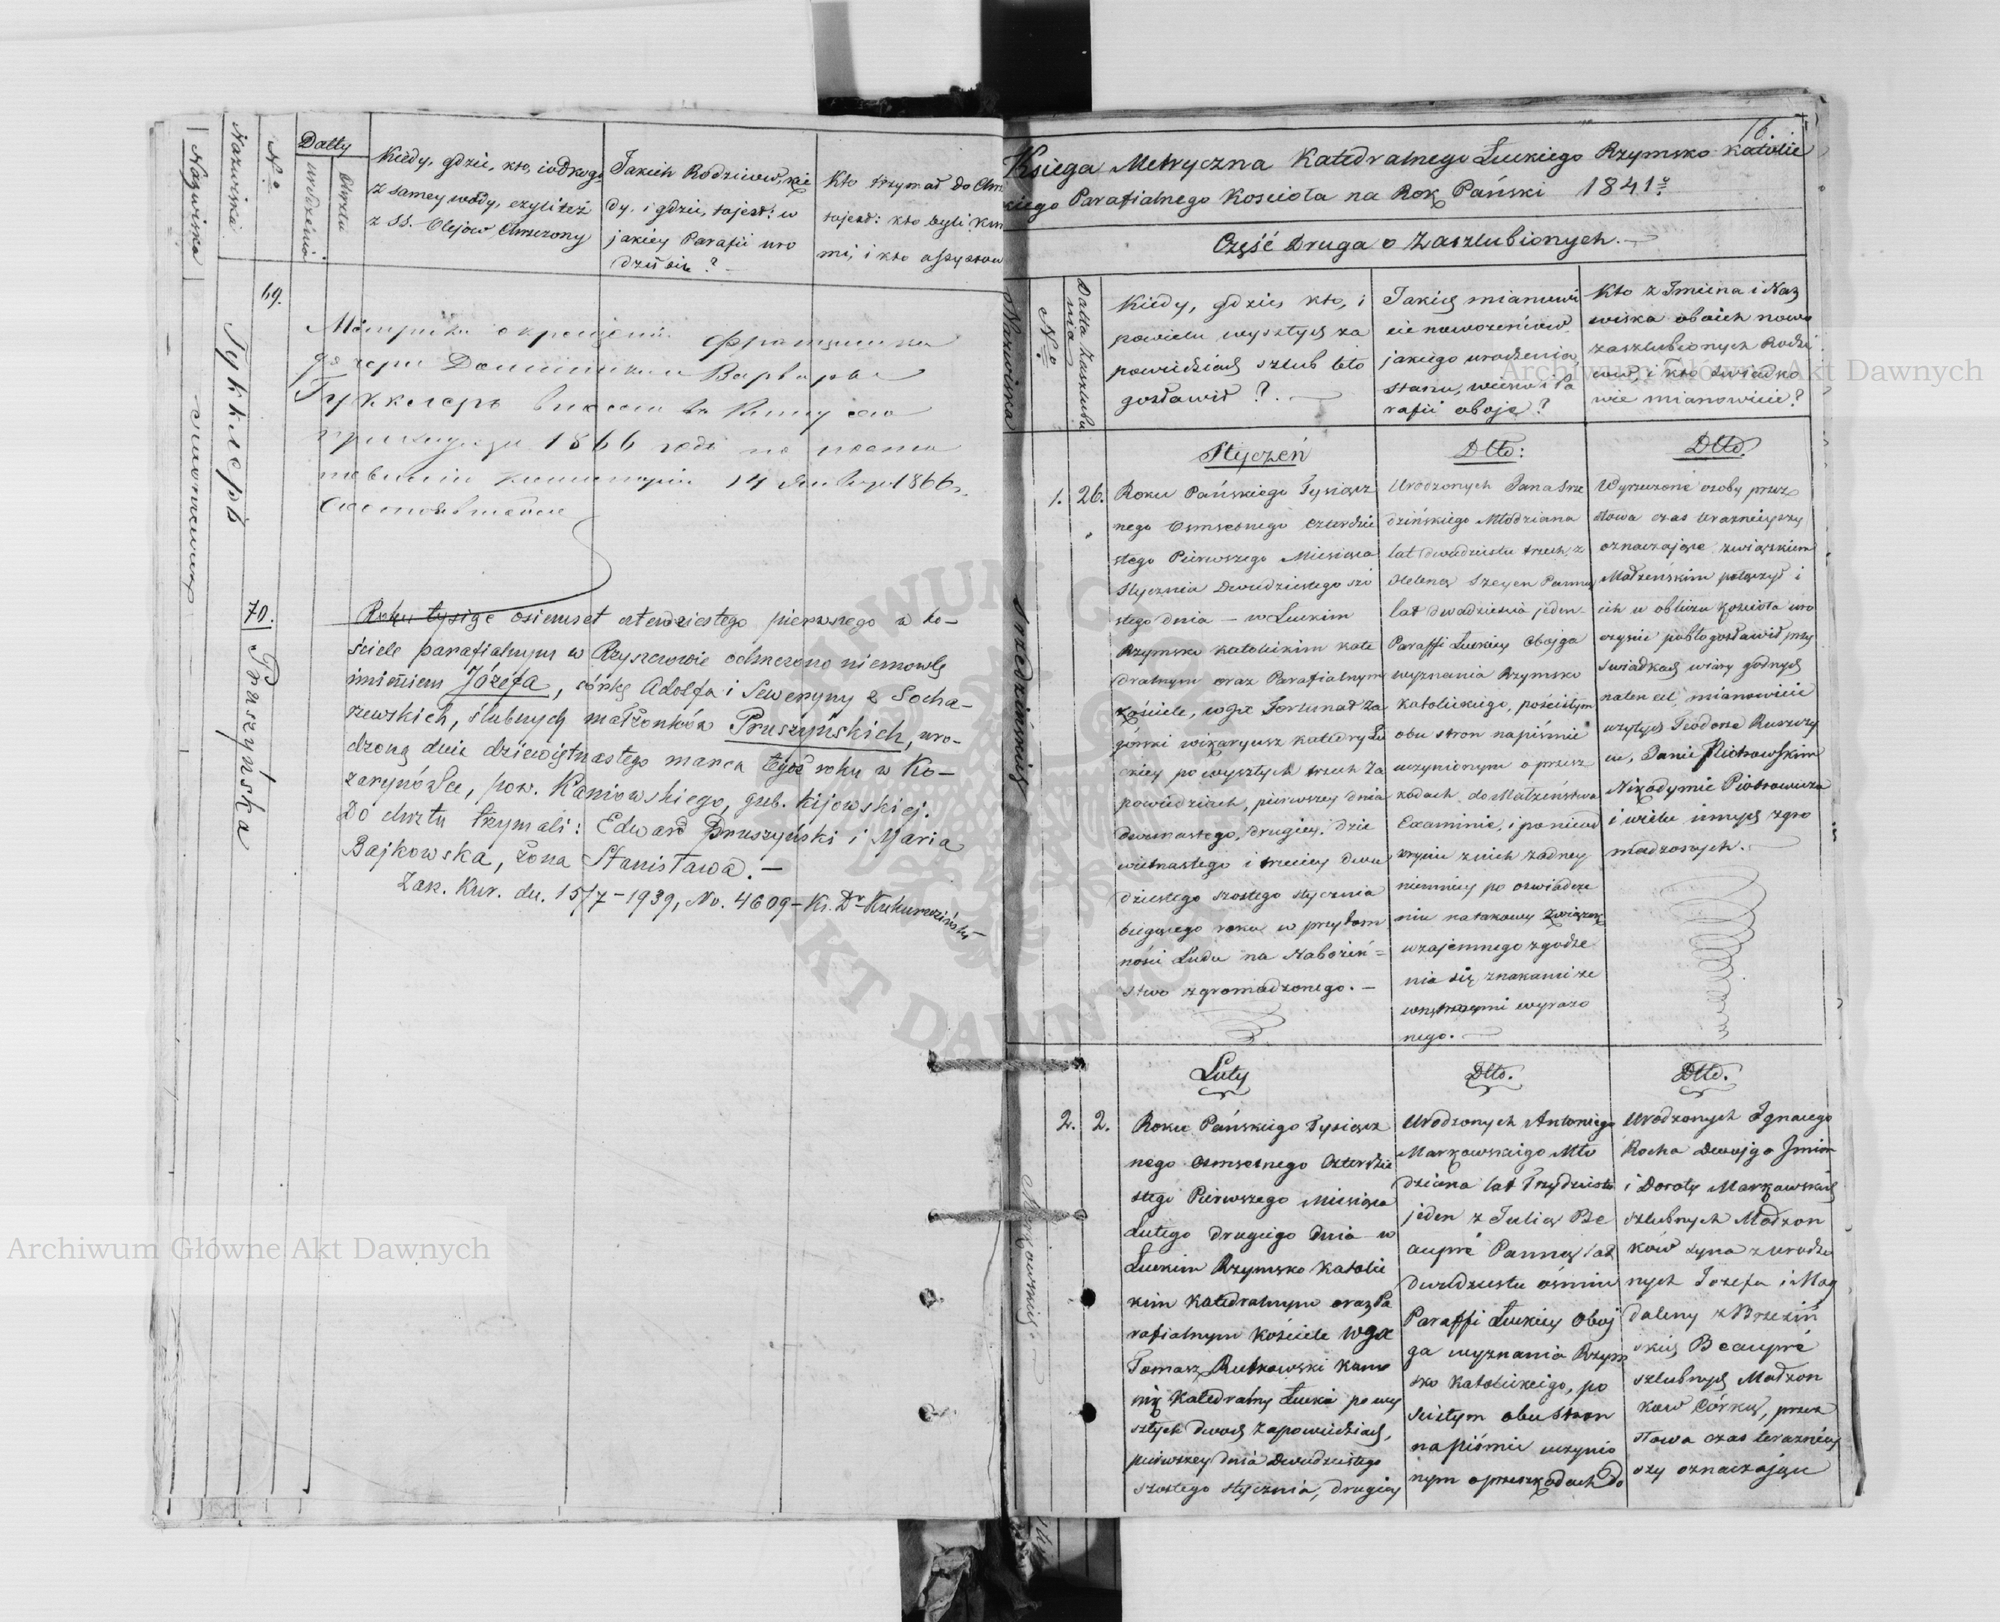 Datty
Kiedy, gdzie, kto, i od kogo
z samey wody, czyli też
z SS. Olejow Chrzczony
Jakich Rodzicow, kie
dy, i gdzie, tojest: w
jakiey Parafii uro
dził się?
Kto trzymał do Chrz
tojest: kto byli Kum
mi, i kto assystow
Nazwiska
Nazwiska
N°
urodzenia
Chrztu
69.
Метрика о крещении Францишки
дочери Доминика и Варвары
1866
14 1866
70.
Pruszyńska
Roku tysiąc osiemset czterdziestego pierwszego w ko-
ściele parafialnym w Rzyszczowie ochrzczono niemowlę
imieniem Józefa, córkę Adolfa i Seweryny z Socha-
rzewskich, ślubnych małżonków Pruszyńskich, uro-
dzoną dnia dziewiętnastego marca tegoż roku w Ko-
zarynówce, pow. Kaniowskiego, gub. kijowskiej.
Do chrztu trzymali: Edward Pruszyński i Maria
Bajkowska, żona Stanisława. —
Zak. Kur. dn. 15/7-1939, No. 4609 - Ks. Dr
16.
Księga Metryczna Katedralnego Łuckiego Rzymsko Katolic
kiego Parafialnego Kościoła na Rok Pański 1841°
Część Druga o Zaszlubionych.
Nazwiska
N°
Datta Zaszlubie
nia
Kiedy, gdzie, kto, i
po wielu wyszłych za
powiedziach szlub bło
gosławił?
Jakich mianowi
cie nowożeńców
jakiego urodzenia
stanu, wieku i Pa
rafii oboje?
Kto z Imienia i Naz
wiska oboich nowo
zaszlubionych Rodzi
ców, i kto świadko
wie mianowicie?
Styczeń
Dtto:
Dtto.
1. 26.
Roku Pańskiego Tysiącz
nego Osmsetnego Czterdzie
stego Pierwszego Miesiąca
Stycznia Dwudziestego szó
stego dnia — w Łuckim
Rzymsko katolickim kate
dralnym oraz Parafialnym
Kościele, wgx Fortunat Za
górski wikaryusz katedry Łu
ckiey po wyszłych trzech Za
powiedziach, pierwszey dnia
Dwunastego, drugiey dzie
więtnastego i trzeciey dwu
dziestego szóstego stycznia
bieżącego roku w przytom
ności Ludu na Nabożeń=
stwo zgromadzonego. —
Urodzonych Jana Srze
dzińskiego Młodziana
lat dwudziestu trzech, z
Heleną Szeyen Panną
lat dwadzieścia jeden
Paraffi Łuckiey Obojga
wyznania Rzymsko
katolickiego, po ścisłym
obu stron na piśmie
uczynionym o przesz
kodach do Małżeństwa
Examinie, i po niewy
kryciu z nich żadney
niemniey po oświadcze
niu na takowy Związek
wzajemnego zgodze
nia się znakami ze
wnętrznymi wyrażo
nego.
Wyrzeczone osoby przez
słowa czas teraznieyszy
oznaczające, związkiem
Małżeńskim połączył i
ich w obliczu Kościoła uro
czyście pobłogosławił przy
świadkach wiary godnych
na ten cel, mianowicie
użytych Teodorze Ruszczy
cu, Janie Piotrowskim
Nikodymie Piotrowicza
i wielu innych zgro
madzonych.
Luty
Dtto.
Dtto.
2. 2.
Roku Pańskiego Tysiącz
nego Osmsetnego Czterdzie
stego Pierwszego Miesiąca
Lutego drugiego Dnia w
Łuckim Rzymsko Katolic
kim Katedralnym oraz Pa
rafialnym Kościele wgx
Tomasz Rutkowski Kano
nik Katedralny Łucki po wy
szłych dwóch Zapowiedziach,
pierwszey dnia Dwudziestego
szóstego stycznia, drugiey
Urodzonych Antoniego
Markowskiego Mło
dziana lat Trzydziestu
jeden z Julią Be
aupré Panną lat
dwudziestu ośmiu
Paraffi Łuckiey Oboj
ga wyznania Rzym
sko Katolickiego, po
ścisłym obu Stron
na piśmie uczynio
nym o przeszkodach do
Urodzonych Ignacego
Rocha Dwojga Imion
i Doroty Markowskich
szlubnych Małżon
ków Syna z urodzo
nych Józefa i Mag
daleny z Brzeziń
skich Beaupré
szlubnych Małżon
kow Córką, przez
słowa czas teraźniey
szy oznaczające
Archiwum Główne Akt Dawnych
Archiwum Główne Akt Dawnych